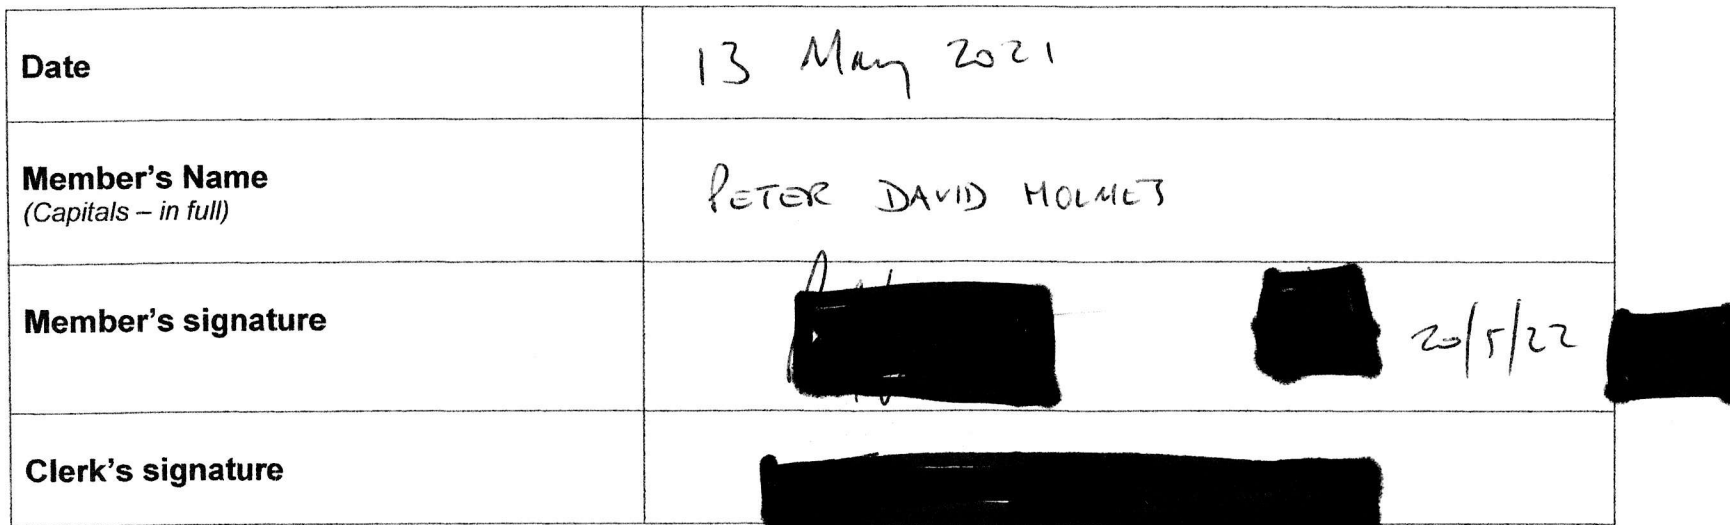 Date
13 May 2021
Member's Name
(Capitals – in full)
PETER DAVID HOLMES
Member's signature
20/5/22
Clerk's signature